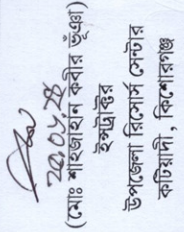 ২০.০৮.২৪
(মোঃ শাহজাহান কবীর ভূঁঞা)
ইন্সট্রাক্টর
উপজেলা রিসোর্স সেন্টার
কটিয়াদী, কিশোরগঞ্জ